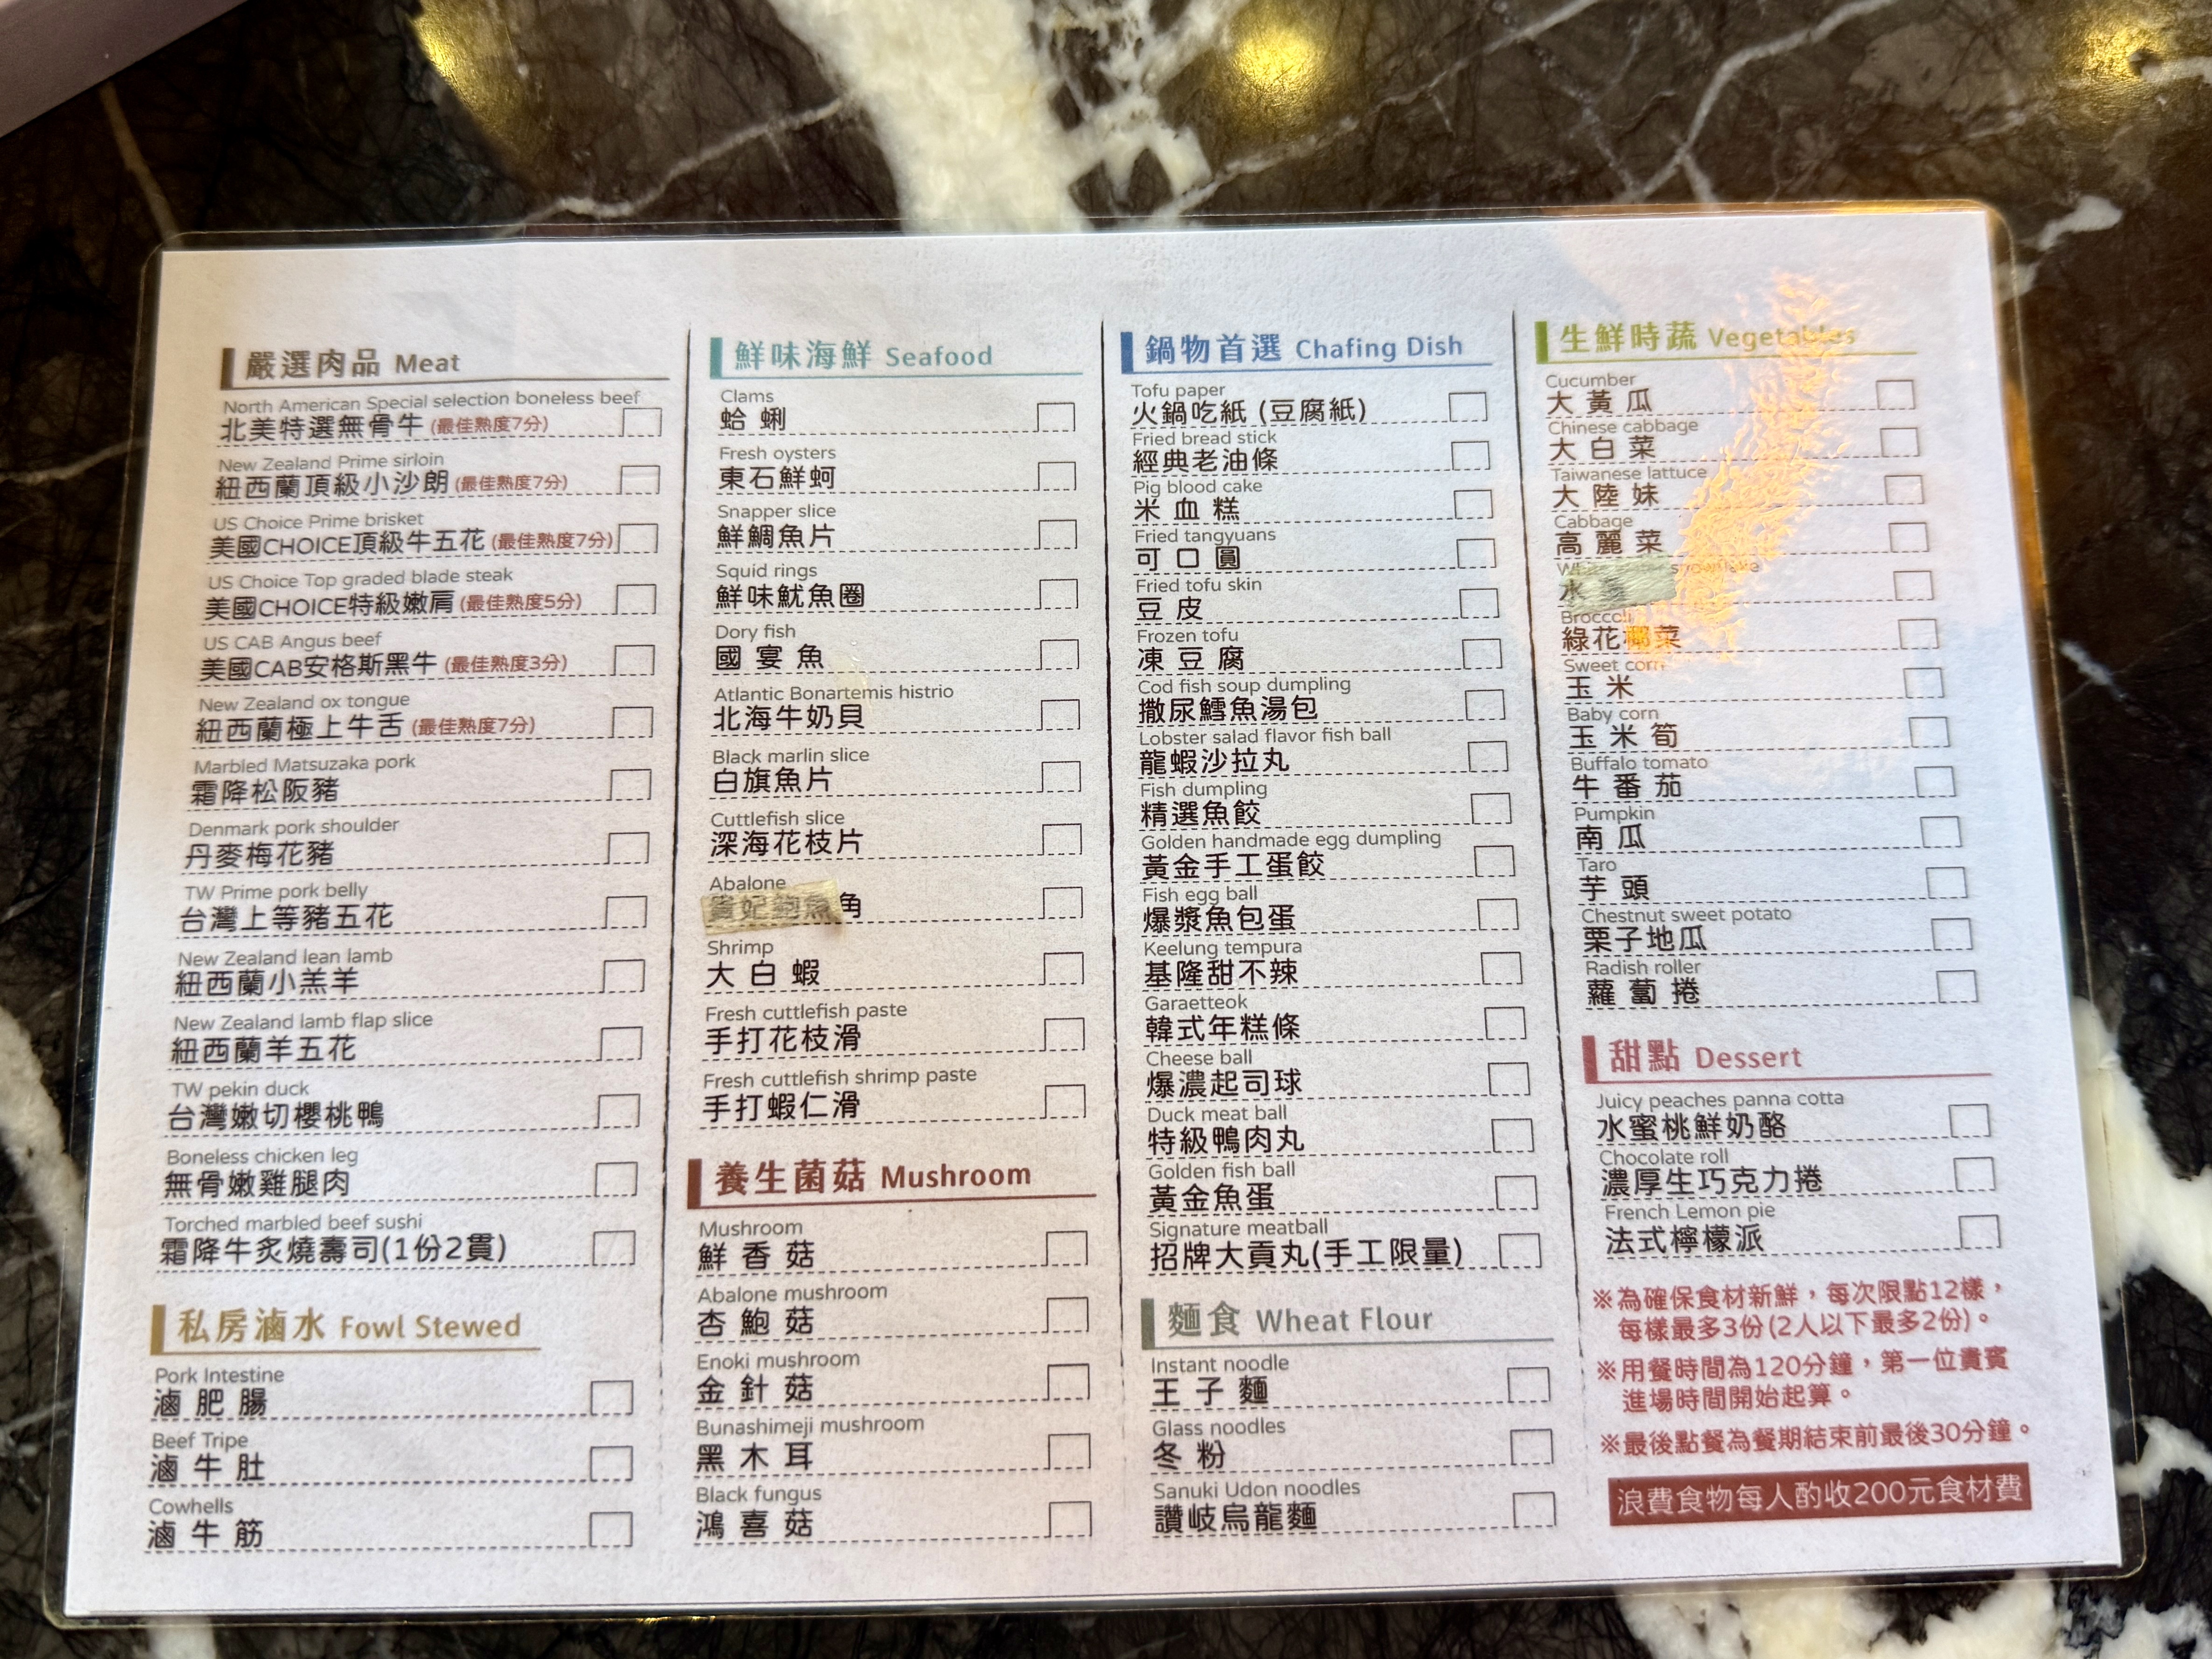 嚴選肉品 Meat
North American Special selection boneless beef
北美特選無骨牛 (最佳熟度7分)
New Zealand Prime sirloin
紐西蘭頂級小沙朗 (最佳熟度7分)
US Choice Prime brisket
美國CHOICE頂級牛五花 (最佳熟度7分)
US Choice Top graded blade steak
美國CHOICE特級嫩肩 (最佳熟度5分)
US CAB Angus beef
美國CAB安格斯黑牛 (最佳熟度3分)
New Zealand ox tongue
紐西蘭極上牛舌 (最佳熟度7分)
Marbled Matsuzaka pork
霜降松阪豬
Denmark pork shoulder
丹麥梅花豬
TW Prime pork belly
台灣上等豬五花
New Zealand lean lamb
紐西蘭小羔羊
New Zealand lamb flap slice
紐西蘭羊五花
TW pekin duck
台灣嫩切櫻桃鴨
Boneless chicken leg
無骨嫩雞腿肉
Torched marbled beef sushi
霜降牛炙燒壽司(1份2貫)
私房滷水 Fowl Stewed
Pork Intestine
滷肥腸
Beef Tripe
滷牛肚
Cowhells
滷牛筋
鮮味海鮮 Seafood
Clams
蛤蜊
Fresh oysters
東石鮮蚵
Snapper slice
鮮鯛魚片
Squid rings
鮮味魷魚圈
Dory fish
國宴魚
Atlantic Bonartemis histrio
北海牛奶貝
Black marlin slice
白旗魚片
Cuttlefish slice
深海花枝片
Abalone
貴妃鮑魚角
Shrimp
大白蝦
Fresh cuttlefish paste
手打花枝滑
Fresh cuttlefish shrimp paste
手打蝦仁滑
養生菌菇 Mushroom
Mushroom
鮮香菇
Abalone mushroom
杏鮑菇
Enoki mushroom
金針菇
Bunashimeji mushroom
黑木耳
Black fungus
鴻喜菇
鍋物首選 Chafing Dish
Tofu paper
火鍋吃紙 (豆腐紙)
Fried bread stick
經典老油條
Pig blood cake
米血糕
Fried tangyuans
可口圓
Fried tofu skin
豆皮
Frozen tofu
凍豆腐
Cod fish soup dumpling
撒尿鱈魚湯包
Lobster salad flavor fish ball
龍蝦沙拉丸
Fish dumpling
精選魚餃
Golden handmade egg dumpling
黃金手工蛋餃
Fish egg ball
爆漿魚包蛋
Keelung tempura
基隆甜不辣
Garaetteok
韓式年糕條
Cheese ball
爆濃起司球
Duck meat ball
特級鴨肉丸
Golden fish ball
黃金魚蛋
Signature meatball
招牌大貢丸(手工限量)
麵食 Wheat Flour
Instant noodle
王子麵
Glass noodles
冬粉
Sanuki Udon noodles
讚岐烏龍麵
生鮮時蔬 Vegetables
Cucumber
大黃瓜
Chinese cabbage
大白菜
Taiwanese lattuce
大陸妹
Cabbage
高麗菜
White water snowflake
水
Broccoli
綠花椰菜
Sweet corn
玉米
Baby corn
玉米筍
Buffalo tomato
牛番茄
Pumpkin
南瓜
Taro
芋頭
Chestnut sweet potato
栗子地瓜
Radish roller
蘿蔔捲
甜點 Dessert
Juicy peaches panna cotta
水蜜桃鮮奶酪
Chocolate roll
濃厚生巧克力捲
French Lemon pie
法式檸檬派
※為確保食材新鮮，每次限點12樣，
每樣最多3份(2人以下最多2份)。
※用餐時間為120分鐘，第一位貴賓
進場時間開始起算。
※最後點餐為餐期結束前最後30分鐘。
浪費食物每人酌收200元食材費